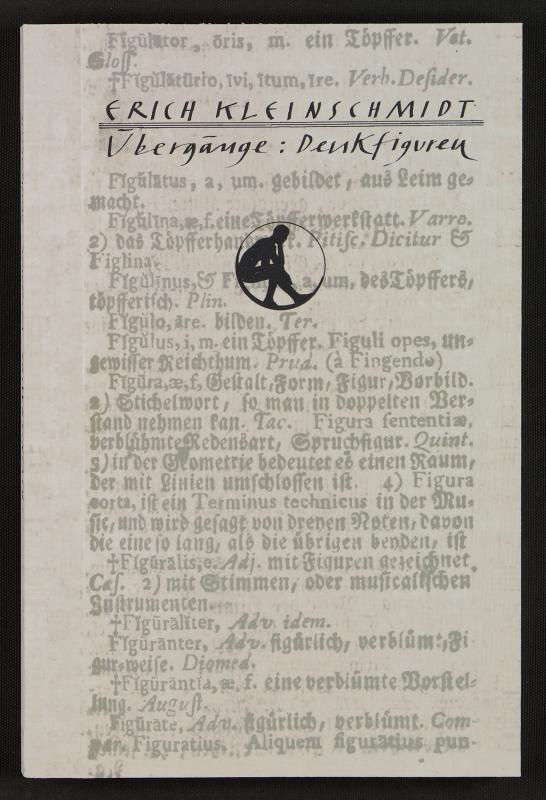 Fĭgŭlātor, ōris, m. ein Töpffer. Vet.
Gloss.
†Fĭgŭlātŭrio, īvi, ītum, īre. Verb. Desider.
ERICH KLEINSCHMIDT
Übergänge: Denkfiguren
Fĭgŭlātus, a, um. gebildet, aus Leim ge⸗
macht.
Fĭgŭlīna, æ, f. eine Töpfferwerkstatt. Varro.
2) das Töpfferhandwerk. Pitisc. Dicitur &
Figlina.
Fĭgŭlīnus, & a, um, des Töpffers,
töpfferisch. Plin.
Fĭgŭlo, āre. bilden. Ter.
Fĭgŭlus, i, m. ein Töpffer. Figuli opes, un⸗
gewisser Reichthum. Prud. (à Fingendo)
Fĭgūra, æ, f, Gestalt, Form, Figur, Vorbild.
2) Stichelwort, so man in doppelten Ver⸗
stand nehmen kan. Tac. Figura sententiæ,
verblühmte Redensart, Spruchfigur. Quint.
3) in der Geometrie bedeutet es einen Raum,
der mit Linien umschlossen ist. 4) Figura
corta, ist ein Terminus technicus in der Mu⸗
sic, und wird gesagt von dreyen Noten, davon
die eine so lang, als die übrigen beyden, ist
†Fĭgūrālis, e. Adj. mit Figuren gezeichnet.
Cæs. 2) mit Stimmen, oder musicalischen
Instrumenten.
†Fĭgūrālĭter, Adv. idem.
Fĭgūranter, Adv. figürlich, verblümt, Fi
gur⸗weise. Diomed.
†Fĭgūrantĭa, æ, f. eine verblümte Vorstel⸗
lung. August.
Figūrāte, Adv. figürlich, verblümt. Com-
par. Figuratius. Aliquem figuratius pun-